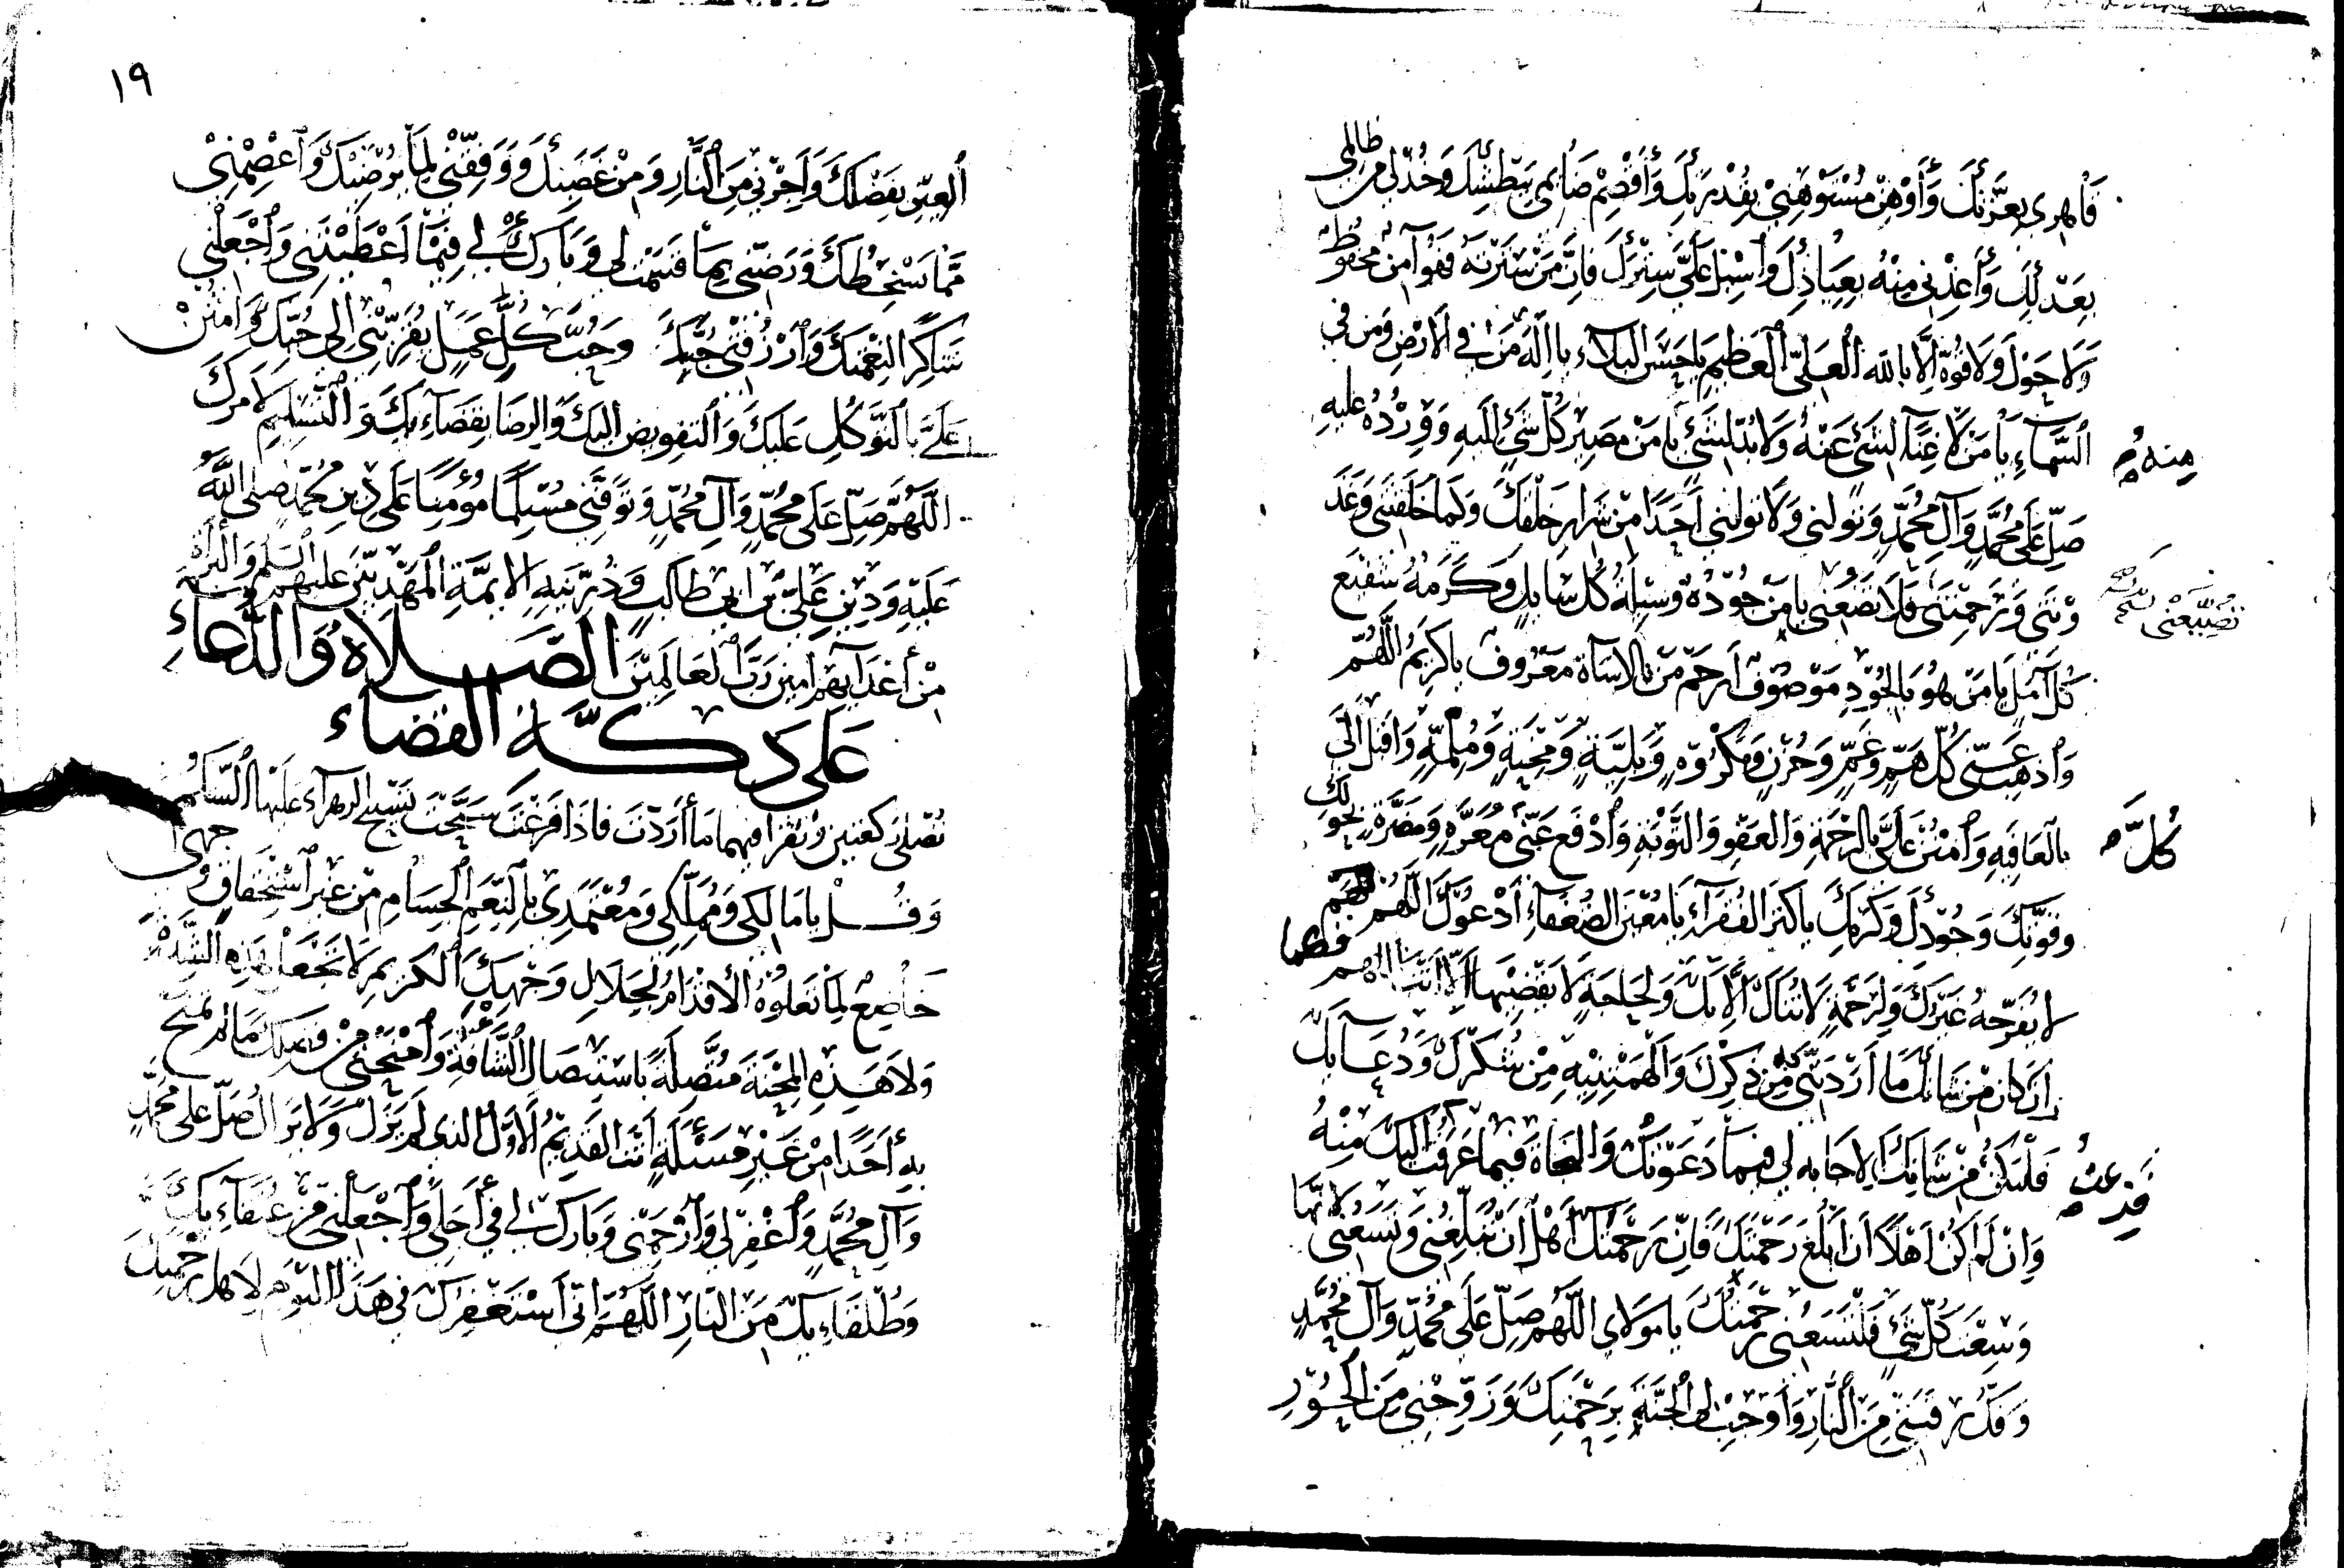 قَاهِرِي بِعِزَّتِكَ وَأَوْهِنْ مُسْتَوْهِنِيْ بِقُدْرَتِكَ وَأَقْصِمْ ضَائِمِي بِبَطْشِكَ وَخُذْ لِي مِنْ ظَالِمِي
بِعَدْلِكَ وَأَعِذْنِي مِنْهُ بِعِيَاذِكَ وَاسْبِلْ عَلَيَّ سِتْرَكَ فَإِنَّ مَنْ سَتَرْتَهُ فَهُوَ آمِنٌ مَحْفُوظٌ
وَلَا حَوْلَ وَلَا قُوَّةَ اِلَّا بِاللهِ الْعَلِيِّ الْعَظِيمِ يَا حَسَنَ الْبَلَاءِ يَا اِلَهَ مَنْ فِي الْاَرْضِ وَمَنْ فِي
السَّمَاءِ يَا مَنْ لَا غِنَا لِشَيْءٍ عَنْهُ وَلَا بُدَّ لِشَيْءٍ يَا مَنْ مَصِيرُ كُلِّ شَيْءٍ اِلَيْهِ وَوِرْدُهُ عَلَيْهِ
مِنهُ
صَلِّ عَلَى مُحَمَّدٍ وَآلِ مُحَمَّدٍ وَتَوَلَّنِي وَلَا تُوَلِّنِي اَحَدًا مِنْ شِرَارِ خَلْقِكَ وَكَمَا خَلَقْتَنِي وَغَذَ
وْتَنِي وَرَحِمْتَنِي فَلَا تَضَعْنِي يَا مَنْ جُوْدُهُ وَسِيلَةُ كُلِّ سَايِلٍ وَكَرَمُهُ شَفِيعُ
تُضِيِّعْنِي
كُلِّ آمِلٍ يَا مَنْ هُوَ بِالْجُوْدِ مَوْصُوْفٌ اَرْحَمْ مَنْ بِالْاِسَاءَةِ مَعْرُوفٌ يَا كَرِيمُ اَللَّهُمَّ
وَاذْهِبْ عَنِّي كُلَّ هَمٍّ وَغَمٍّ وَحُزْنٍ وَمَكْرُوهٍ وَبَلِيَّةٍ وَمِحْنَةٍ وَمُلِمَّةٍ وَاَقْبِلْ اِلَيَّ
بِالْعَافِيَةِ وَامْنُنْ عَلَيَّ بِالرَّحْمَةِ وَالْعَفْوِ وَالتَّوْبَةِ وَادْفَعْ عَنِّي مَعَرَّةٍ وَمَضَرَّةٍ بِحَوْلِكَ
كُلَّ
وَقُوَّتِكَ وَجُوْدِكَ وَكَرَمِكَ يَا كَنْزَ الْفُقَرَاءِ يَا مُعِيْنَ الضُّعَفَاءِ اَدْعُوْكَ اللَّهُمَّ لِهَمٍّ
لَا يُفَرِّجُهُ غَيْرُكَ وَلِرَحْمَةٍ لَا تُنَالُ اِلَّا بِكَ وَلِحَاجَةٍ لَا يَقْضِيْهَا اِلَّا اَنْتَ اللهم فكما
اَنْ كَانَ مِنْ شَاْنِكَ مَا اَرَدْتَنِي مِنْ ذِكْرِكَ وَاَلْهَمْتَنِيهِ مِنْ شُكْرِكَ وَدُعَائِكَ
فَلْيَكُنْ مِنْ شَانِكَ الْاِجَابَةُ لِي فِيمَا دَعَوْتُكَ وَالنَّجَاةُ فِيمَا عَرَفْتُ اِلَيْكَ مِنْهُ
فَزِعتُ
وَاِنْ لَمْ اَكُنْ اَهْلًا اَنْ اَبْلُغَ رَحْمَتَكَ فَاِنَّ رَحْمَتَكَ اَهْلٌ اَنْ تَبْلُغَنِي وَتَسَعَنِي لِاَنَّهَا
وَسِعَتْ كُلَّ شَيْءٍ فَلْتَسَعْنِي رَحْمَتُكَ يَا مَوْلَايَ اللَّهُمَّ صَلِّ عَلَى مُحَمَّدٍ وَآلِ مُحَمَّدٍ
وَفُكَّ رَقَبَتِي مِنَ النَّارِ وَاَوْجِبْ لِيَ الْجَنَّةَ بِرَحْمَتِكَ وَزَوِّجْنِي مِنَ الْحُوْرِ
١٩
الْعِيْنِ بِفَضْلِكَ وَاَجِرْنِي مِنَ النَّارِ وَمِنْ غَضَبِكَ وَوَفِّقْنِي لِمَا يُرْضِيْكَ وَاعْصِمْنِيْ
مِمَّا يُسْخِطُكَ وَرَضِّنِي بِمَا قَسَمْتَ لِي وَبَارِكْ لِي فِيْمَا اَعْطَيْتَنِي وَاجْعَلْنِي
شَاكِرًا لِنِعْمَتِكَ وَارْزُقْنِي حُبَّكَ وَحُبَّ كُلِّ عَمَلٍ يُقَرِّبُنِي اِلَى حُبِّكَ وَامْنُنْ
عَلَيَّ بِالتَّوَكُّلِ عَلَيْكَ وَالتَّفْوِيضِ اِلَيْكَ وَالرِّضَا بِقَضَآئِكَ وَالتَّسْلِيمِ لِاَمْرِكَ
اَللَّهُمَّ صَلِّ عَلَى مُحَمَّدٍ وَآلِ مُحَمَّدٍ وَتَوَفَّنِي مُسْلِمًا مُؤْمِنًا عَلَى دِيْنِ مُحَمَّدٍ صَلَّى اللهُ
عَلَيْهِ وَدِيْنِ عَلِيِّ بْنِ اَبِي طَالِبٍ وَذُرِّيَّتِهِ الْاَئِمَّةِ الْمَهْدِيِّيْنَ عَلَيْهِمُ السَّلَمُ وَالْبَرَاءَةِ
مِنْ أَعْدَآئِهِمْ آمِيْنَ رَبَّ الْعَالَمِيْنَ الصَّلَاةُ وَالدُّعَاءُ
عَلَى دَكَّةِ القَضَاءِ
تُصَلِّيْ رَكْعَتَيْنِ وَتَقْرَأُ فِيهِمَا مَا أَرَدْتَ فَاِذَا فَرَغْتَ سَبَّحْتَ تَسْبِيْحَ الزَّهْرَآءِ عَلَيْهَا السَّلَمُ
وَقُلْ يَا مَالِكِي وَمُمَلِّكِي وَمُعْتَمَدِي بِالنِّعَمِ الْجِسَامِ مِنْ غَيْرِ اسْتِحْقَاقٍ وَجْهِي
خَاضِعٌ لِمَا تَعْلُوهُ الْاَقْدَامُ لِجَلَالِ وَجْهِكَ الْكَرِيمِ لَا تَجْعَلْ هَذِهِ الشِّدَّةَ
وَلَا هَذِهِ الْمِحْنَةَ مُتَّصِلَةً بِاسْتِيْصَالِ الشَّأْفَةِ وَامْنَحْنِي مِنْ فَضْلِكَ مَا لَمْ تَمْنَحْ
بِهِ أَحَدًا مِنْ غَيْرِ مَسْئَلَةٍ اَنْتَ الْقَدِيْمُ الْاَوَّلُ الَّذِي لَمْ يَزَلْ وَلَا يَزَالُ صَلِّ عَلَى مُحَمَّدٍ
وَآلِ مُحَمَّدٍ وَاغْفِرْ لِي وَارْحَمْنِي وَبَارِكْ لِي فِي أَجَلِي وَاجْعَلْنِي مِنْ عُتَقَآئِكَ
وَطُلَقَاءِكَ مِنَ النَّارِ اللَّهُمَّ اِنِّي اَسْتَغْفِرُكَ فِي هَذَا الْيَوْمِ لِاَهْلِ رَحْمَتِكَ